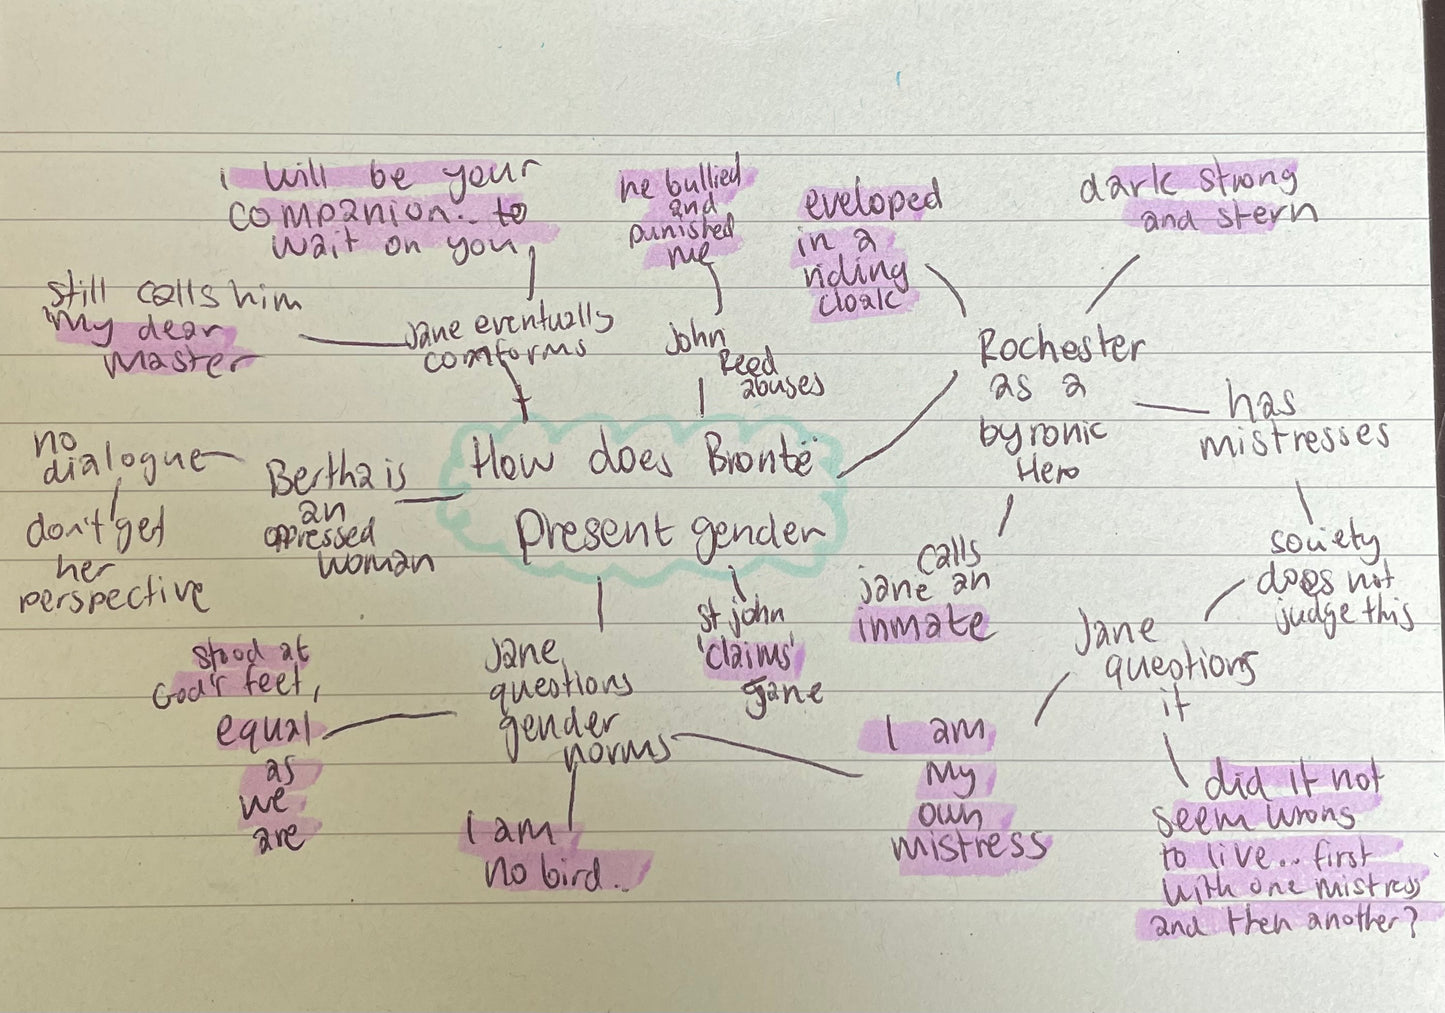 I will be your
companion.. to
wait on you
he bullied
and
punished
me
eveloped
in a
riding
cloak
dark strong
and stern
still calls him
"my dear
master
Jane eventually
comforms
John
Reed
abuses
Rochester
as a
byronic
Hero
has
mistresses
no
dialogue
don't get
her
perspective
Bertha is
an
oppressed
woman
How does Brontë
present gender
calls
jane an
inmate
society
does not
judge this
Jane
questions
it
st john
'claims'
Jane
Jane
questions
gender
norms
stood at
God's feet,
equal
as
we
are
I am
no bird..
I am
my
own
mistress
did it not
seem wrong
to live... first
with one mistress
and then another?